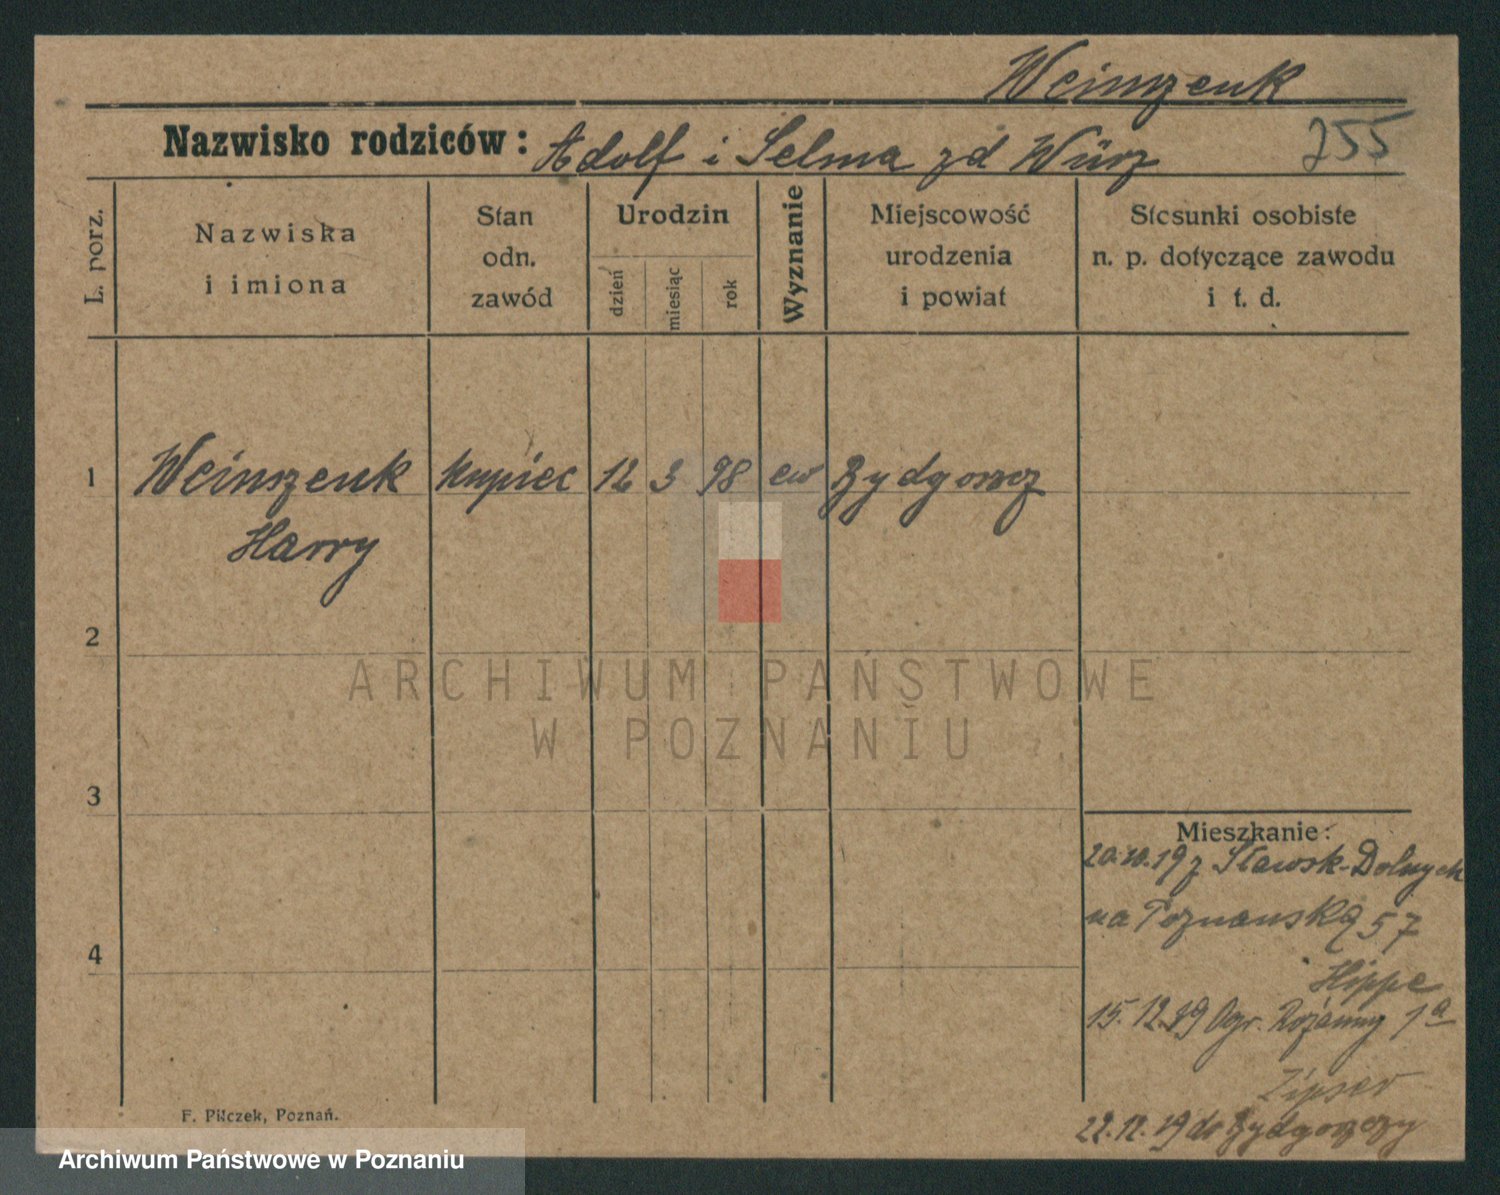 Weimzenk
Nazwisko rodziców: Adolf i Selma zd Würz
255
L. porz.
Nazwiska
i imiona
Stan
odn.
zawód
Urodzin
dzień
miesiąc
rok
Wyznanie
Miejscowość
urodzenia
i powiat
Stosunki osobiste
n. p. dotyczące zawodu
i t. d.
1 Weimzenk kupiec 12 3 98 ew Bydgoszcz
Harry
2
ARCHIWUM PAŃSTWOWE
W POZNANIU
3
Mieszkanie:
20.10.19 z Sławsk-Dolnych
na Poznańską 57
4
Hippe
15.12.19 Ogr. Różanny 1a
Zipser
22.12.19 do Bydgoszczy
F. Piłczek, Poznań.
Archiwum Państwowe w Poznaniu